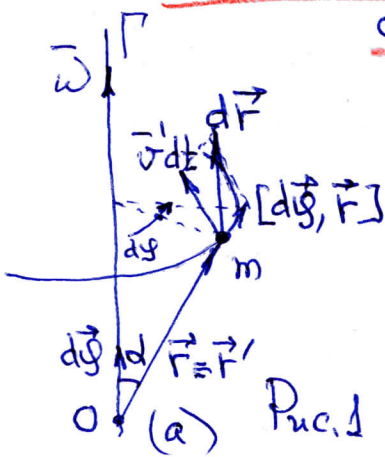 Г
ω̄
dr⃗
v̄'dt
[dφ⃗, r⃗]
dφ
m
dφ⃗
α
r⃗ ≡ r⃗'
O
(a)
Рис. 1